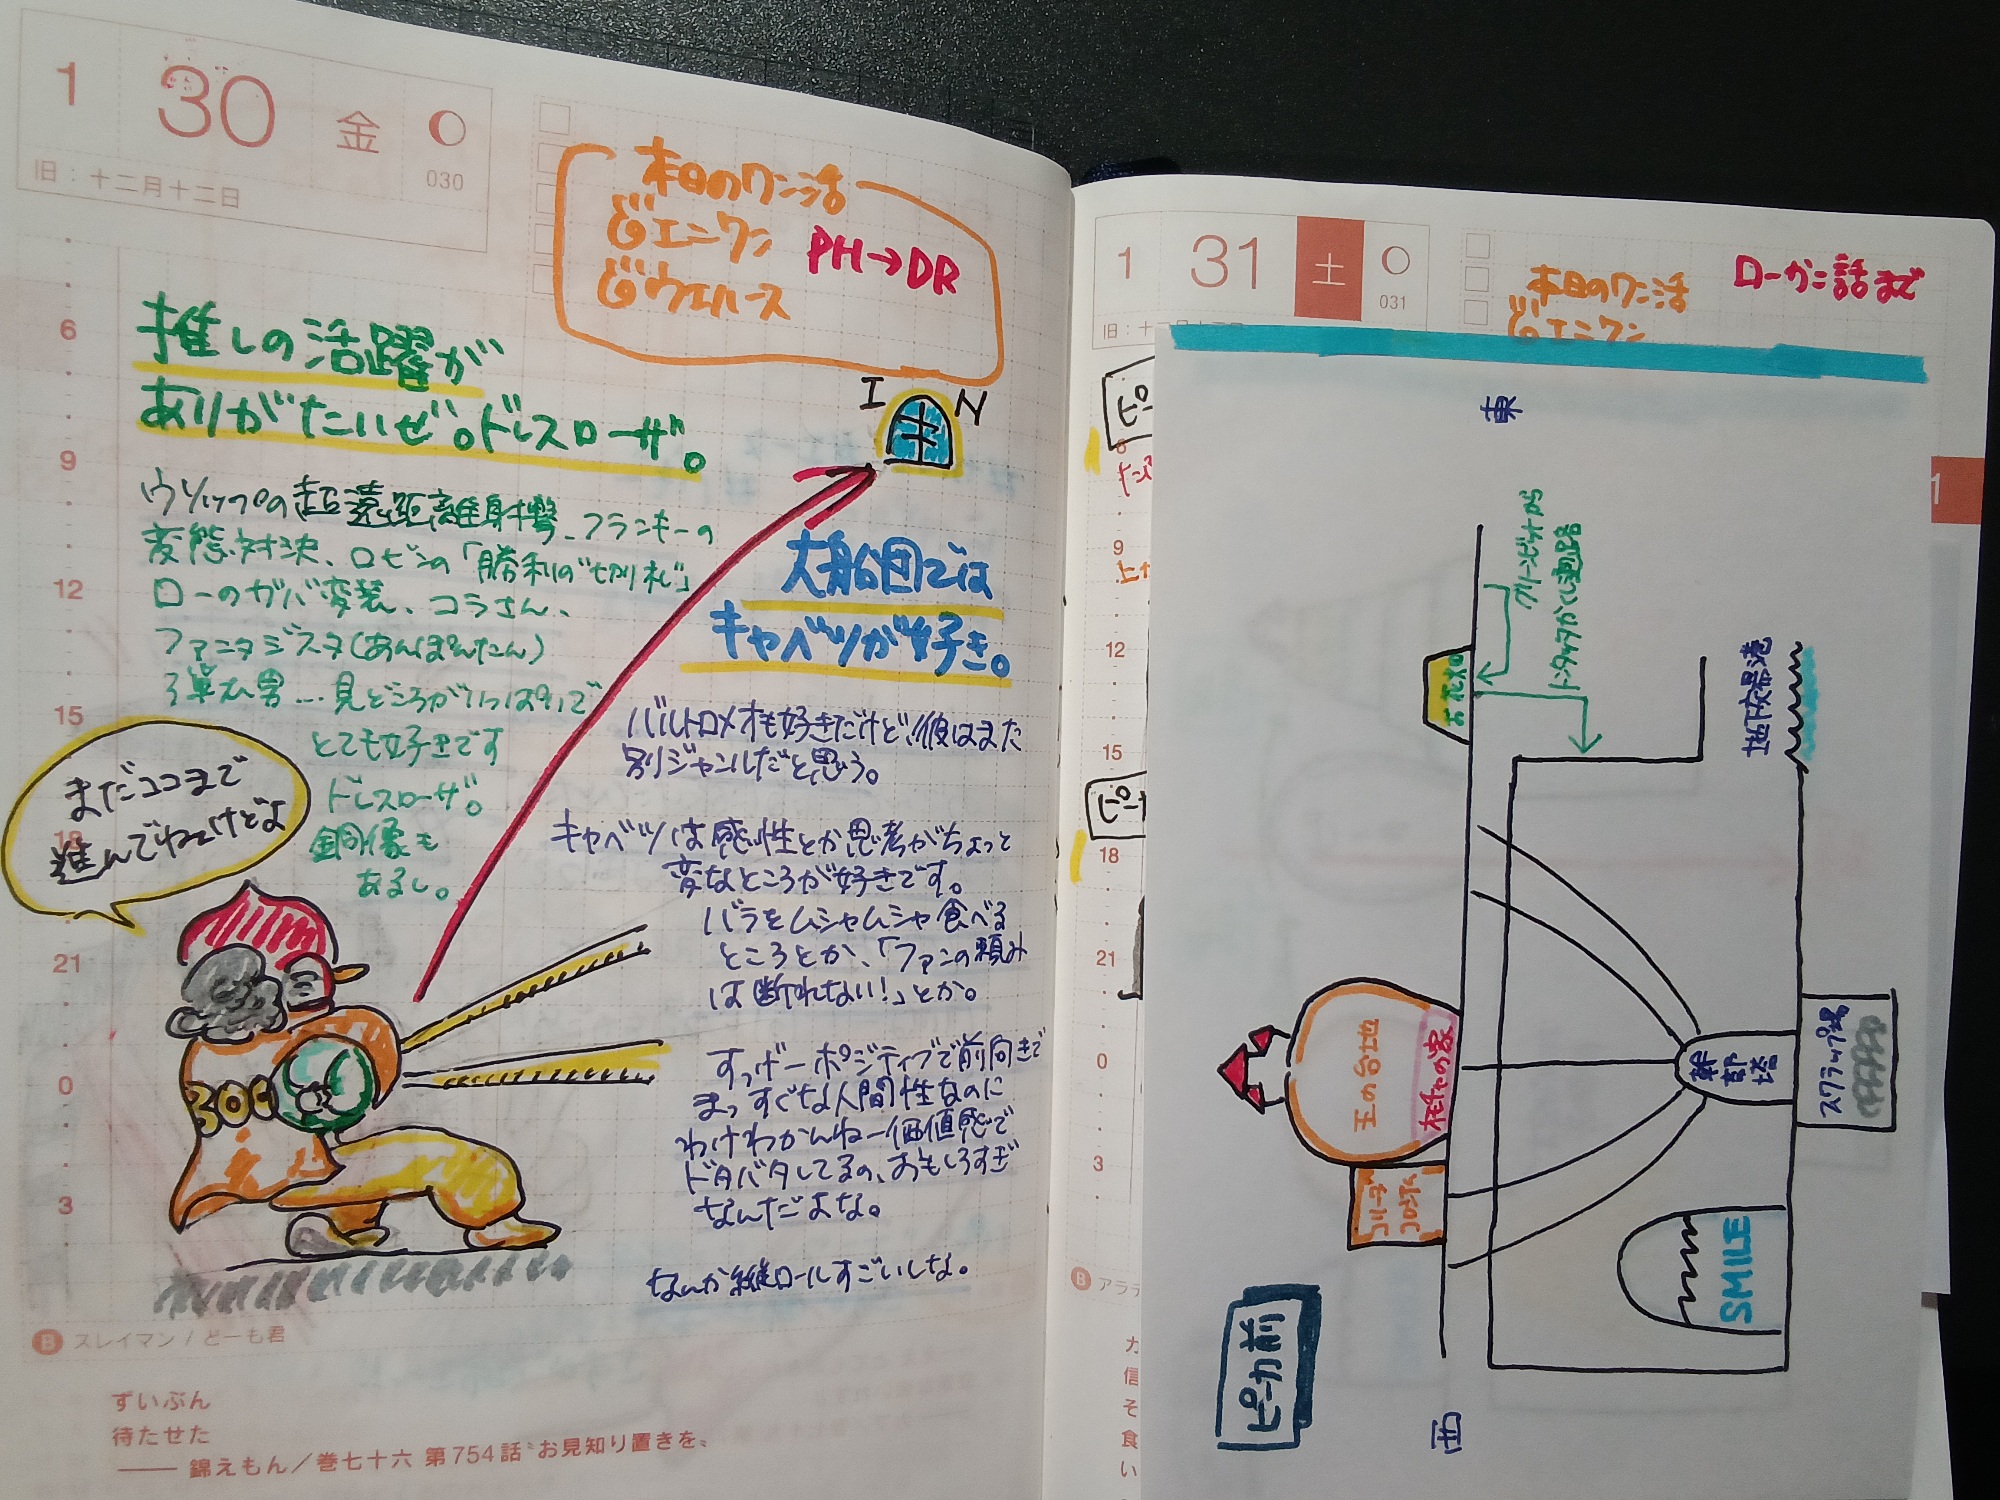 1 30 金
030
旧：十二月十二日
本日のワン活
エニワン
ウエハース
PH→DR
推しの活躍が
ありがたいぜ。ドレスローザ。
ウソップの超遠距離射撃、フランキーの
変態対決、ロビンの「勝利の切り札」
ローのガバ変装、コラさん、
ファニタジスタ(あんぽんたん)
弾む男…見どころがいっぱいで
とても好きです
ドレスローザ。
銅像も
あるし。
まだココまで
進んでねェけどよ
I N
大船団では
キャベツが好き。
バルトロメオも好きだけど、彼はまた
別ジャンルだと思う。
キャベツは感性とか思考がちょっと
変なところが好きです。
バラをムシャムシャ食べる
ところとか、「ファンの頼み
は断れない!」とか。
すっげーポジティブで前向きで
まっすぐな人間性なのに
わけわかんねー価値感で
ドタバタしてるの、おもしろすぎ
なんだよな。
なんか縦ロールすごいしな。
300
6
9
12
15
18
21
0
3
B スレイマン / どーも君
ずいぶん
待たせた
—— 錦えもん／巻七十六 第754話“お見知り置きを”
1 31 土
031
旧：十
本日のワン活
エニワン
ローか二話まで
1
ピ
ピ
9
12
15
18
21
0
3
B アララ
カ
信
そ
食
い
東
グリーンビットから
トンタッタかくし通路
お花畑
地下交易港
王の台地
オモチャの家
コリーダ
コロシアム
幹部塔
スクラップ場
SMILE
ピーカ前
西